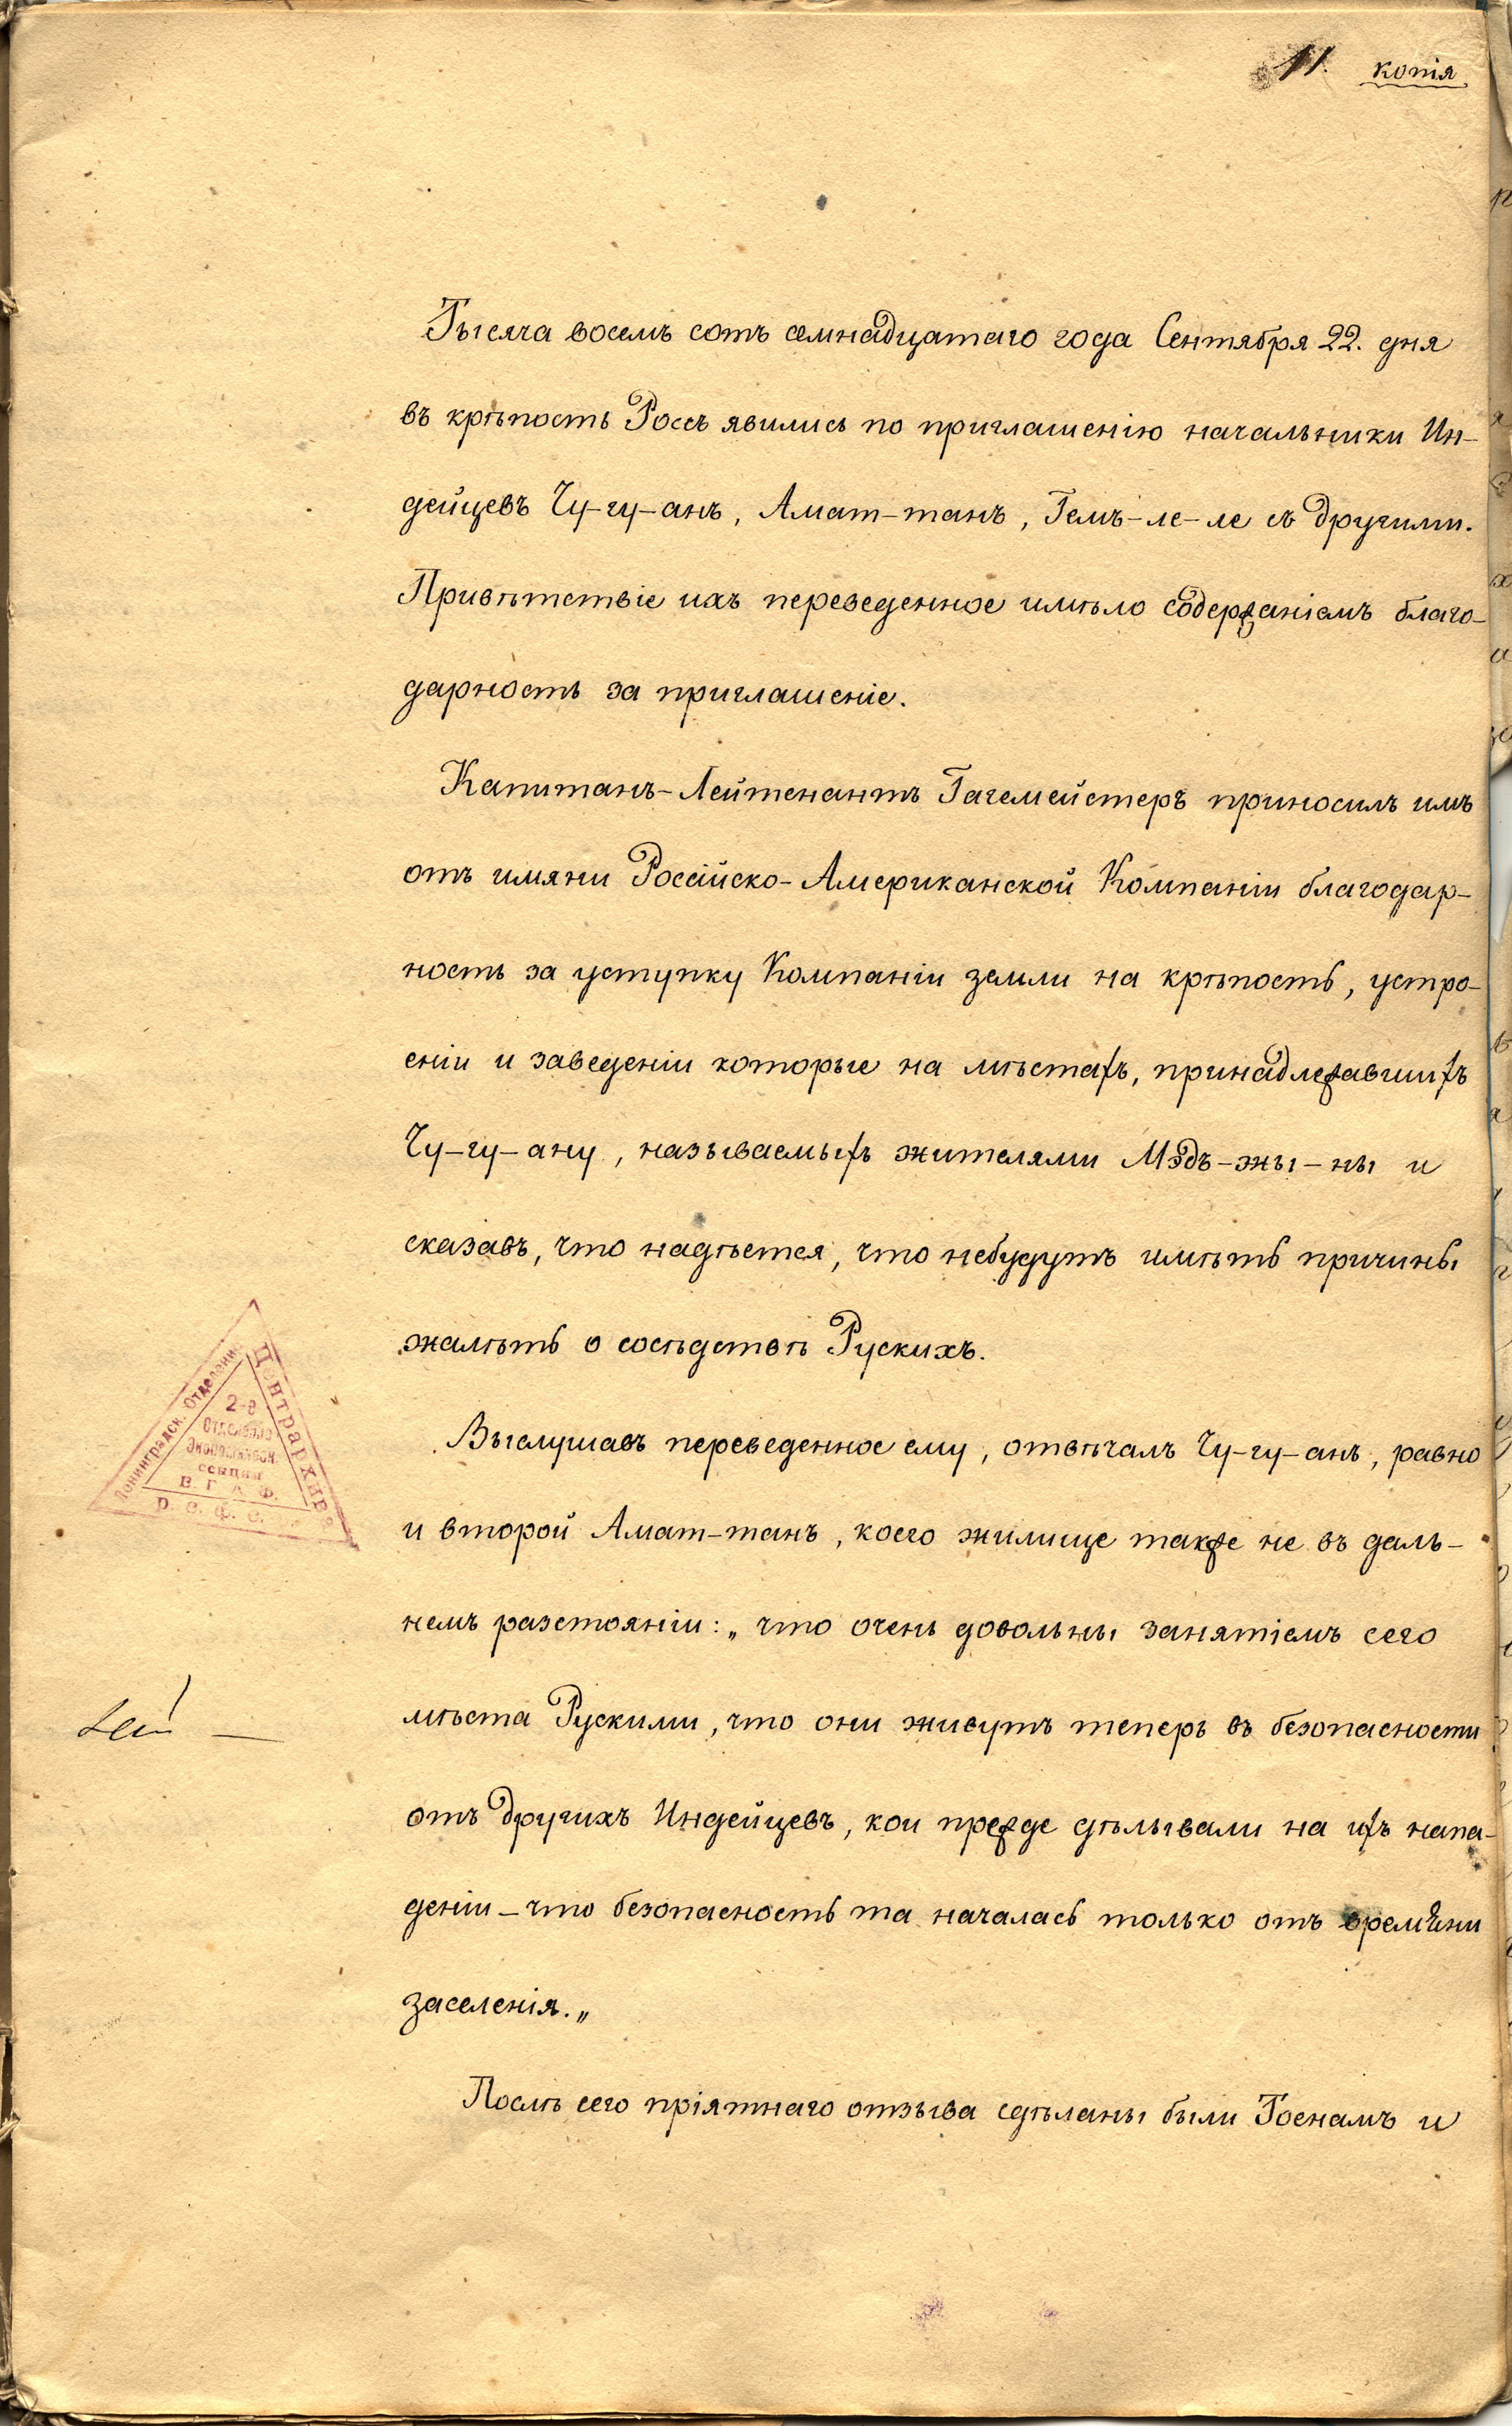 11. копія
Тысяча восемь сотъ семнадцатаго года Сентября 22. дня
въ крѣпость Россъ явились по приглашенію начальники Ин-
дейцевъ Чу-гу-анъ, Амат-танъ, Гемъ-ле-ле съ другими.
Привѣтствіе ихъ переведенное имѣло содержаніемъ благо-
дарность за приглашеніе.
Капитанъ-Лейтенантъ Гагемейстеръ приносилъ имъ
отъ имяни Россійско-Американской Компаніи благодар-
ность за уступку Компаніи земли на крѣпость, устро-
еніи и заведеніи которые на мѣстахъ, принадлежавшихъ
Чу-гу-ану, называемыхъ жителями Мэдъ-жы-ны и
сказавъ, что надѣется, что небудутъ имѣть причины
жалѣть о сосѣдствѣ Рускихъ.
Выслушавъ переведенное ему, отвѣчалъ Чу-гу-анъ, равно
и второй Амат-танъ, коего жилище также не въ даль-
немъ разстояніи: „ что очень довольны занятіемъ сего
мѣста Рускими, что они живутъ теперь въ безопасности
отъ другихъ Индейцевъ, кои прежде дѣлывали на ихъ напа-
деніи - что безопасность та началась только отъ времяни
заселенія. „
Послѣ сего пріятнаго отзыва сдѣланы были Тоенамъ и
Ленинградск. Отделение
Центрархива
2-е
Отделение
Экономическ.
секции
Е. Г. А. Ф.
Р. С. Ф. С.